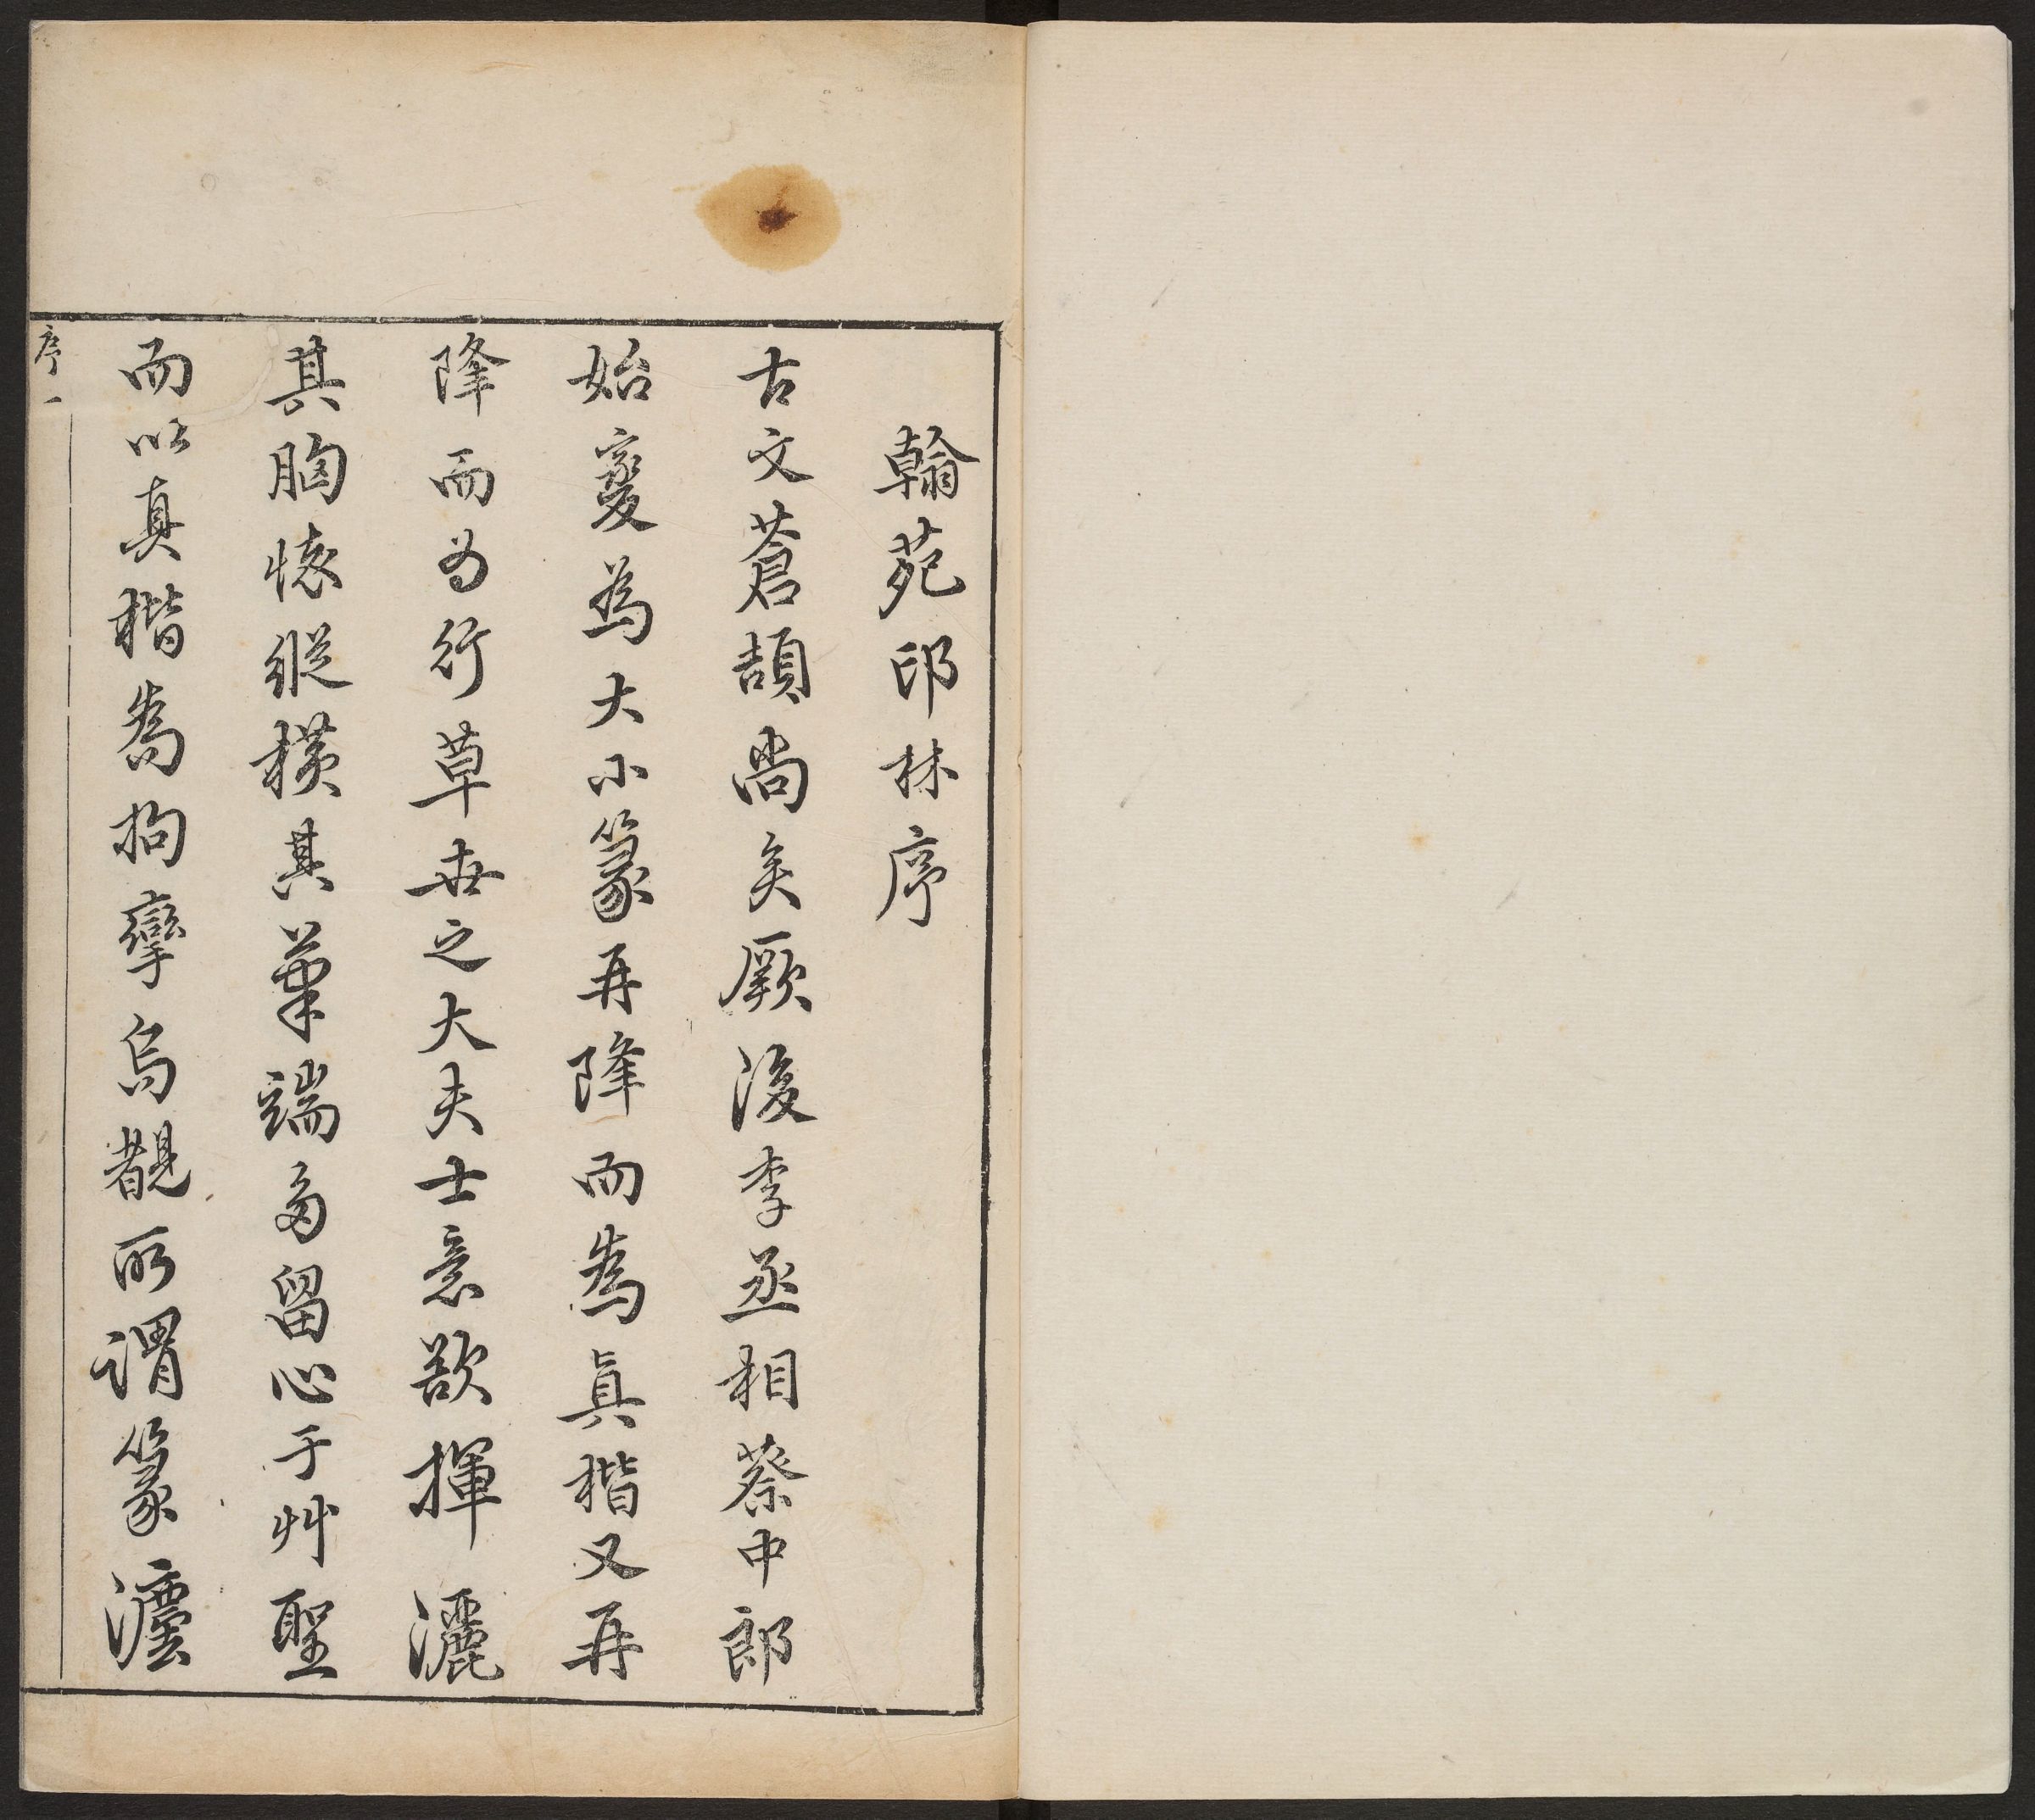 翰苑印林序
古文蒼頡尚矣厥後李丞相蔡中郎
始變為大小篆再降而為真楷又再
降而为行草世之大夫士意欲揮灑
其胸懷縱橫其筆端多留心于艸聖
而以真楷為拘攣烏覩所謂篆灋
序一